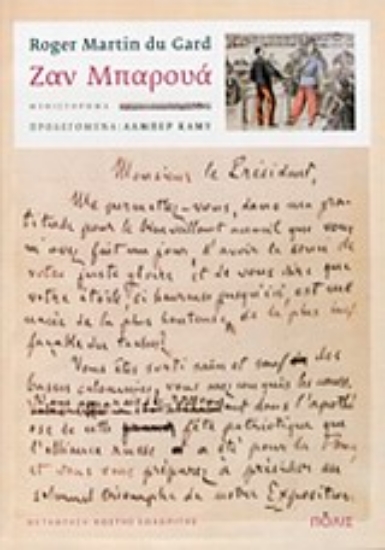 Roger Martin du Gard
Ζαν Μπαρουά
ΜΥΘΙΣΤΟΡΗΜΑ
ΠΡΟΛΕΓΟΜΕΝΑ: ΑΛΜΠΕΡ ΚΑΜΥ
Monsieur le Président,
Me permettez-vous, dans ma gra-
titude pour le bienveillant accueil que vous
m'avez fait un jour, d'avoir le souci de
votre juste gloire et de vous dire que
votre étoile, si heureuse jusqu'ici, est me-
nacée de la plus honteuse, de la plus inef-
façable des taches?
Vous êtes sorti sain et sauf des
basses calomnies, vous avez conquis les cœurs.
dans l'apothé-
ose de cette fête patriotique que
l'alliance russe a été pour la France,
et vous vous préparez à présider au
solennel triomphe de notre Exposition
ΜΕΤΑΦΡΑΣΗ ΚΩΣΤΗΣ
ΠΟΛΙΣ